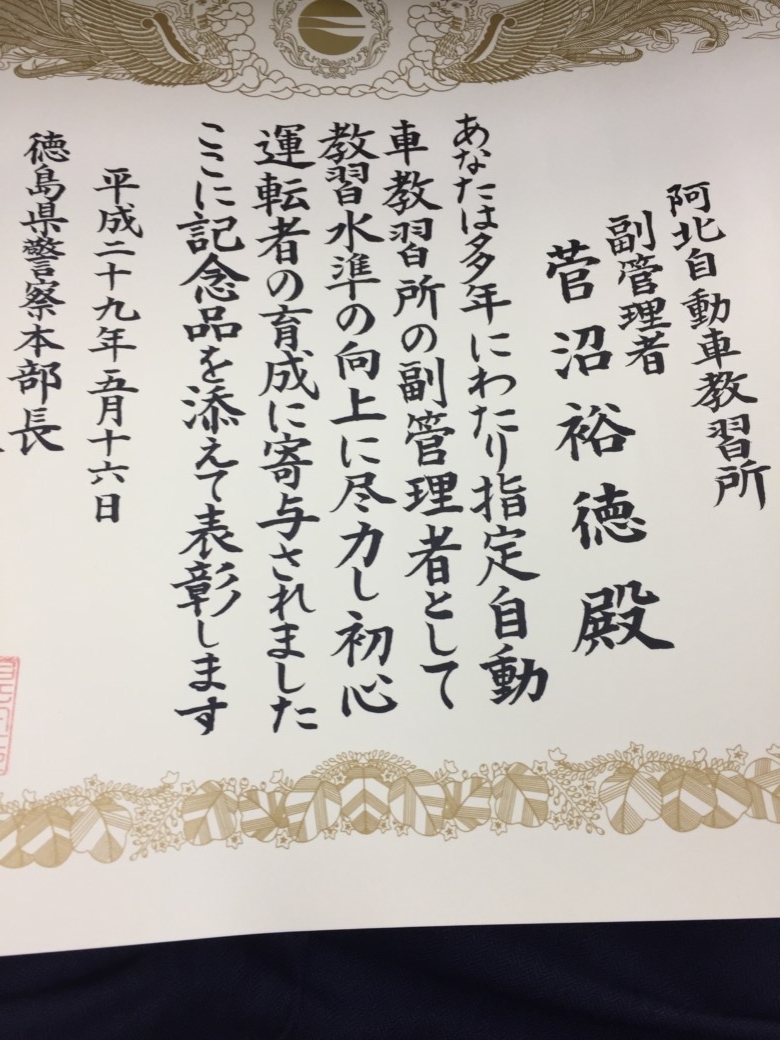 阿北自動車教習所
副管理者
菅沼裕徳殿
あなたは多年にわたり指定自動
車教習所の副管理者として
教習水準の向上に尽力し初心
運転者の育成に寄与されました
ここに記念品を添えて表彰します
平成二十九年五月十六日
徳島県警察本部長